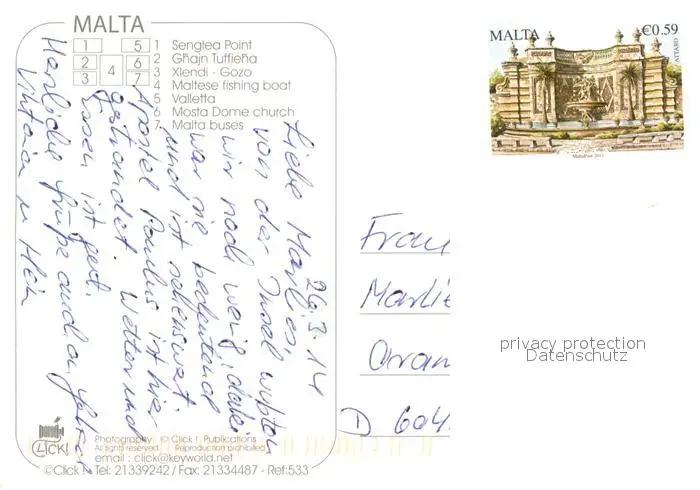 MALTA
1 Senglea Point
2 Għajn Tuffieħa
3 Xlendi - Gozo
4 Maltese fishing boat
5 Valletta
6 Mosta Dome church
7 Malta buses
1 5
2 4 6
3 7
26.3.14
Liebe Marlies,
von der Insel wußten
wir noch wenig, dabei
war sie bedeutend
und ist sehenswert.
Apostel Paulus ist hier
gestrandet. Wetter und
Essen ist gut.
Herzliche Grüße auch an
Viktoria u. Hein
Photography: © Click ! Publications
All rights reserved. Reproduction prohibited.
email : click@keyworld.net
CLICK!
©Click ! Tel: 21339242 / Fax: 21334487 - Ref:533
MALTA €0.59
MaltaPost 2013
Frau
Marlie
Oran
D 604
privacy protection
Datenschutz